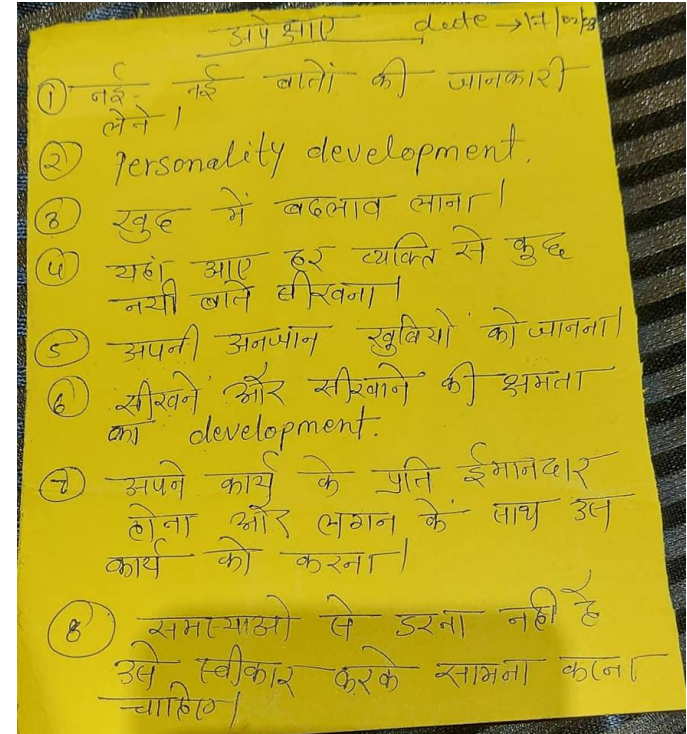 अपेक्षाए date → 17/03/23
① नई - नई बातों की जानकारी
लेने।
② Personality development.
③ खुद में बदलाव लाना।
④ यहां आए हर व्यक्ति से कुछ
नयी बाते सीखना।
⑤ अपनी अनजान खुबियों को जानना।
⑥ सीखने और सीखाने की क्षमता
का development.
⑦ अपने कार्य के प्रति ईमानदार
होना और लगन के साथ उस
कार्य को करना।
⑧ समस्याओ से डरना नही है
उसे स्वीकार करके सामना करना
चाहिए।